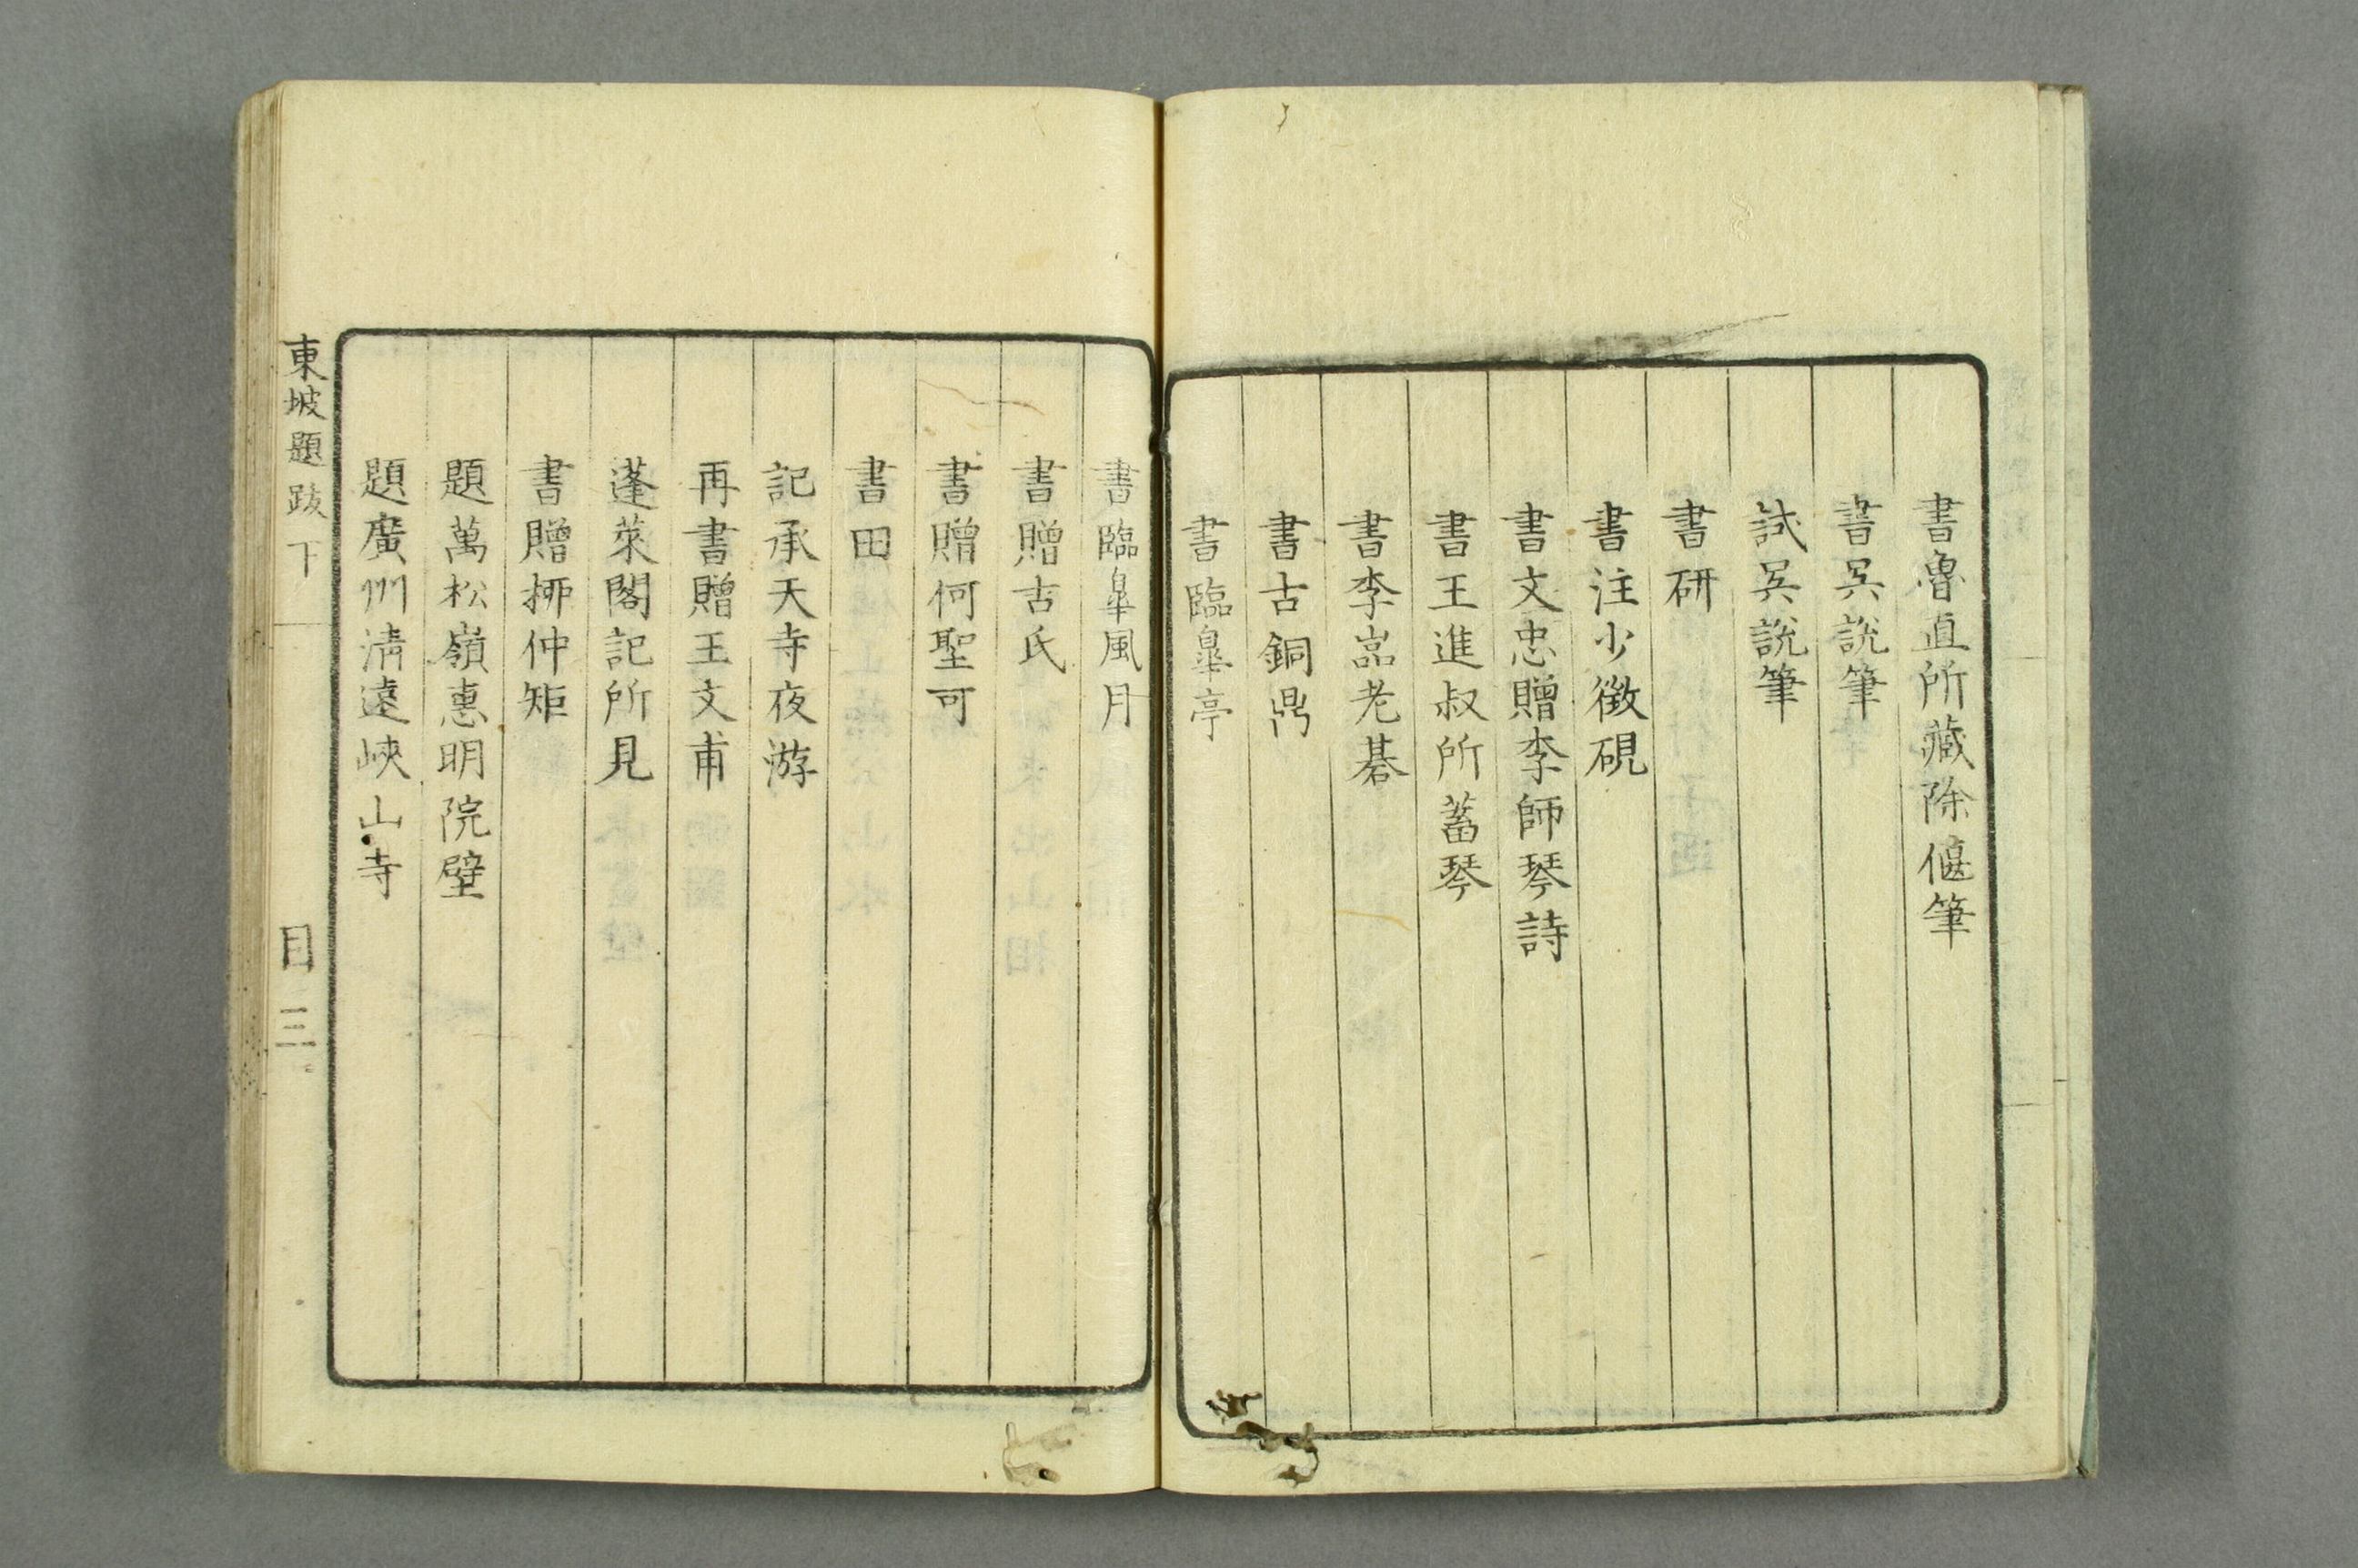 書魯直所藏除偃筆
書吳説筆
試吳説筆
書研
書注少徴硯
書文忠贈李師琴詩
書王進叔所蓄琴
書李嵓老碁
書古銅鼎
書臨皐亭
書臨皐風月
書贈古氏
書贈何聖可
書田
記承天寺夜游
再書贈王文甫
蓬萊閣記所見
書贈栁仲矩
題萬松嶺惠明院壁
題廣州清遠峽山寺
東坡題跋下
目三